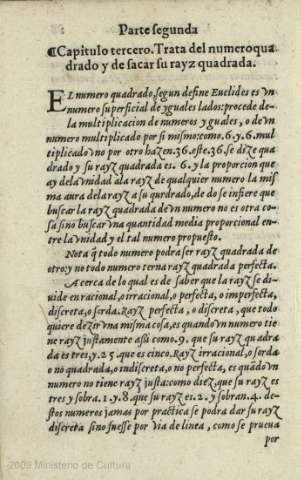 Parte segunda
¶Capitulo tercero. Trata del numero qua
drado y de sacar su rayz quadrada.
EL numero quadrado, segun define Euclides es vn
numero superficial de yguales lados: procede de-
la multiplicacion de numeros yguales, o de vn
numero multiplicado por si mismo: como. 6. y. 6. mul
tiplicado vno por otro hazen. 36. este. 36. se dize qua
drado y su rayz quadrada es. 6. y la proporcion que
ay dela vnidad ala rayz de qualquier numero la mis
ma aura dela rayz a su qurdrado, de do se infiere que
buscar la rayz quadrada de vn numero no es otra co-
sa sino buscar vna quantidad media proporcional en-
tre la vnidad y el tal numero propuesto.
Nota q̃ todo numero podra ser rayz quadrada de
otro: y no todo numero terna rayz quadrada perfecta.
Acerca de lo qual es de saber que la rayz se di-
vide en racional, o irracional, o perfecta, o imperfecta,
discreta, o sorda. Rayz perfecta, o discreta, que todo
quiere dezir vna misma cosa, es quando vn numero tie
ne rayz justamente assi como. 9. que su rayz quadra
da es tres. y. 25. que es cinco. Rayz irracional, o sorda
o no quadrada, o indiscreta, o no perfecta, es quãdo vn
numero no tiene rayz justa: como diez, que su rayz es
tres y sobra. 1. y. 8. que su rayz es. 2. y sobran. 4. de-
stos numeros jamas por practica se podra dar su rayz
discreta sino fuesse por via de linea, como se prueua
por
2009 Ministerio de Cultura